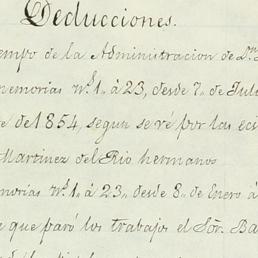 Deducciones.
empo de la Administracion de D.n
memorias n.s 1.. á 23, desde 7.. de Jul
e de 1854, segun se vé por las
Martinez del Rio hermanos
morias n.s 1.. á 23.. desde 8.. de Enero á
que paró los trabajos el Sôr. Ba